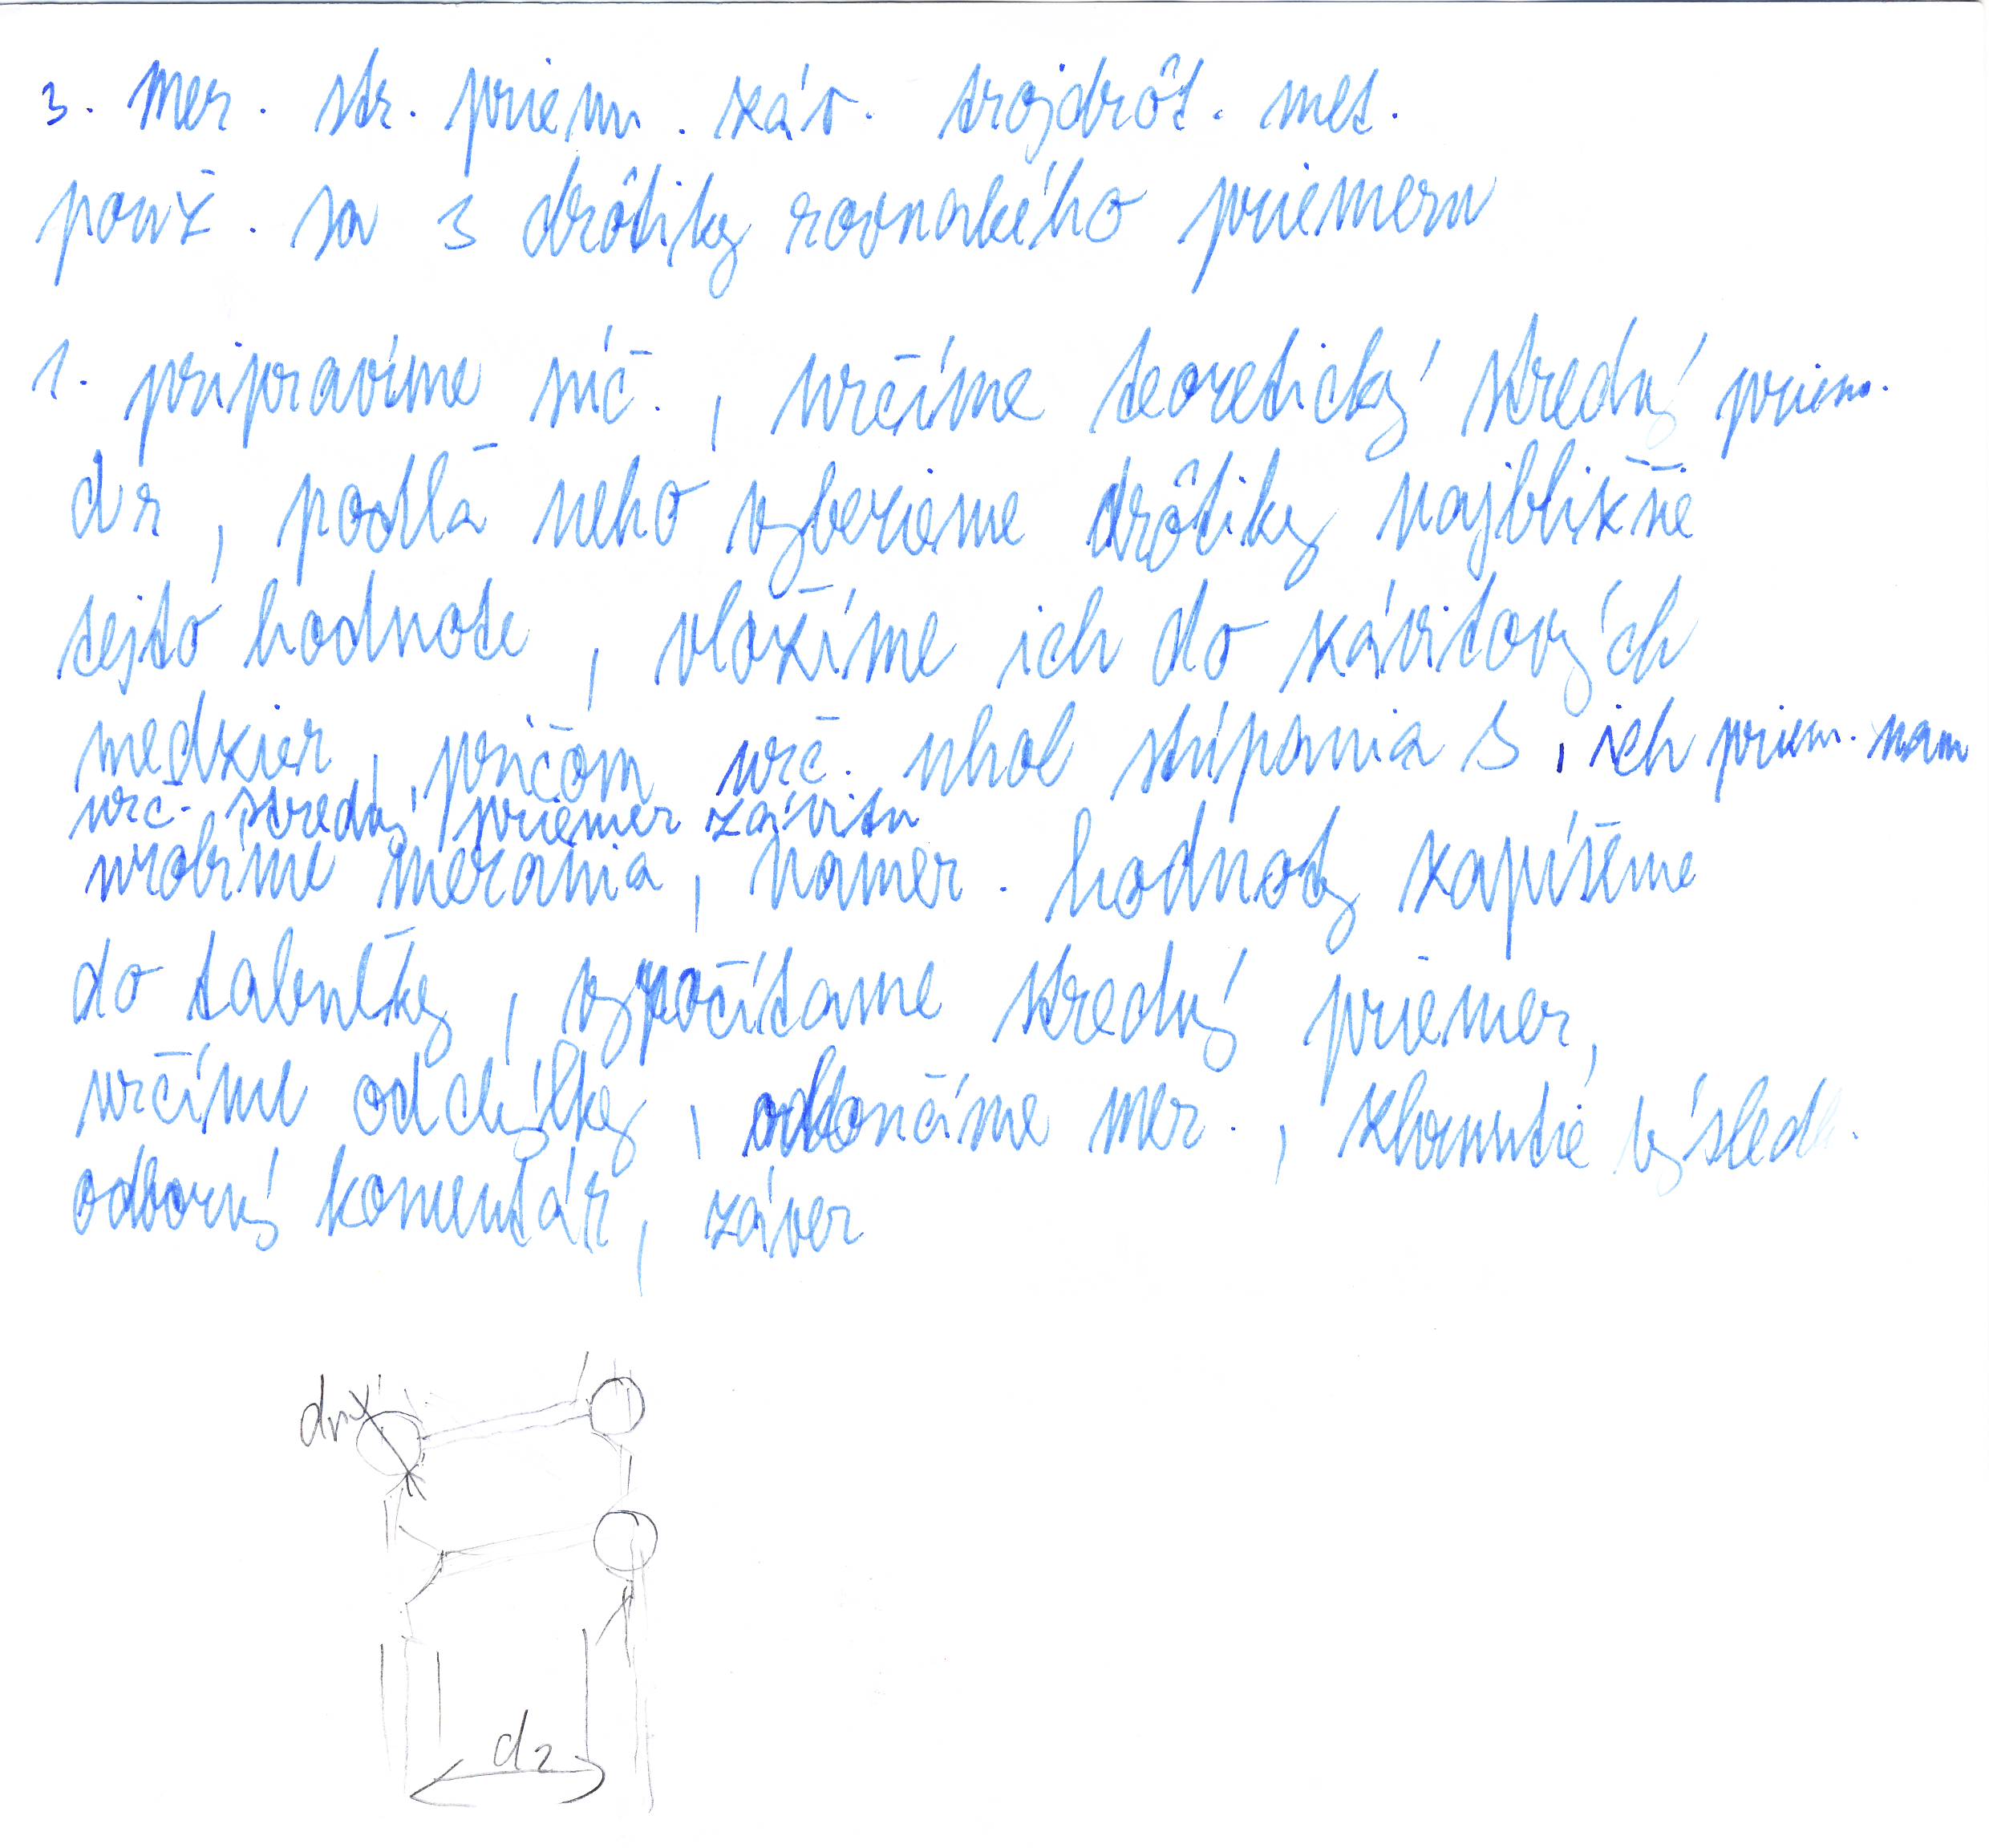 3. mer. str. priem. záv. trojdrôt. met.
použ. sa 3 drôtiky rovnakého priemeru
1. pripravíme súč., určíme teoretický stredný priem.
dr, podľa neho vyberieme drôtiky najbližšie
tejto hodnote, vložíme ich do závitových
medzier, pričom urč. uhol stúpania S, ich priem. nam
urč. stredný priemer závitu
urobíme merania, namer. hodnoty zapíšeme
do tabuľky, vypočítame stredný priemer,
určíme odchýlky, odkončíme mer., zhrnutie výsledk.
odborný komentár, záver
d2